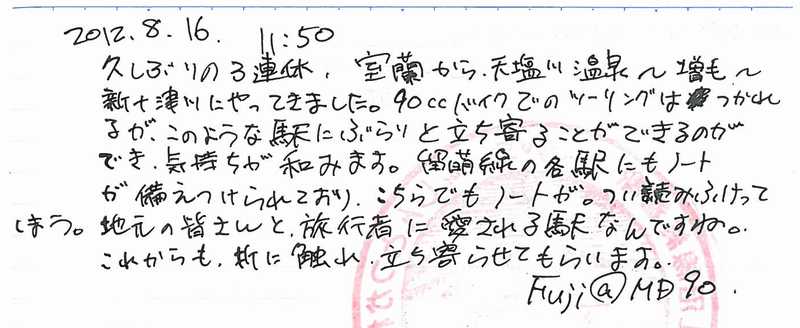 2012.8.16. 11:50
久しぶりの3連休、室蘭から、天塩川温泉〜増毛〜
新十津川にやってきました。90ccバイクでのツーリングはつかれ
るが、このような駅にぶらりと立ち寄ることができるのが
でき、気持ちが和みます。留萌線の各駅にもノート
が備えつけられており、こちらでもノートが。つい読みふけって
しまう。地元の皆さんと、旅行者に愛される駅なんですね。
これからも、折に触れ、立ち寄らせてもらいます。
Fuji@MD90.